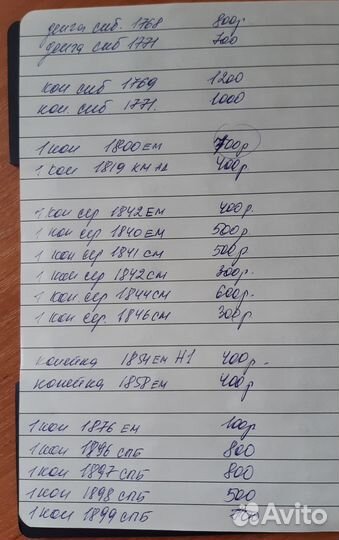 денга сиб. 1768 800р.
денга сиб 1771 700
коп сиб 1769 1200
коп. сиб 1771. 1000
1 коп 1800 ЕМ 700р
1 коп 1819 КМ АД 400р.
1 коп сер 1842 ЕМ 400р.
1 коп сер 1840 ЕМ 500р.
1 коп сер 1841 СМ 500р.
1 коп сер 1842 СМ 300р.
1 коп сер 1844 СМ 600р.
1 коп сер. 1846 СМ 300р.
копейка 1854 ЕМ Н1 400р.
копейка 1858 ЕМ 400р
1 коп 1876 ЕМ 100р
1 коп 1896 СПБ 800
1 коп 1897 СПБ 800
1 коп 1898 СПБ 500
1 коп 1899 СПБ
Avito